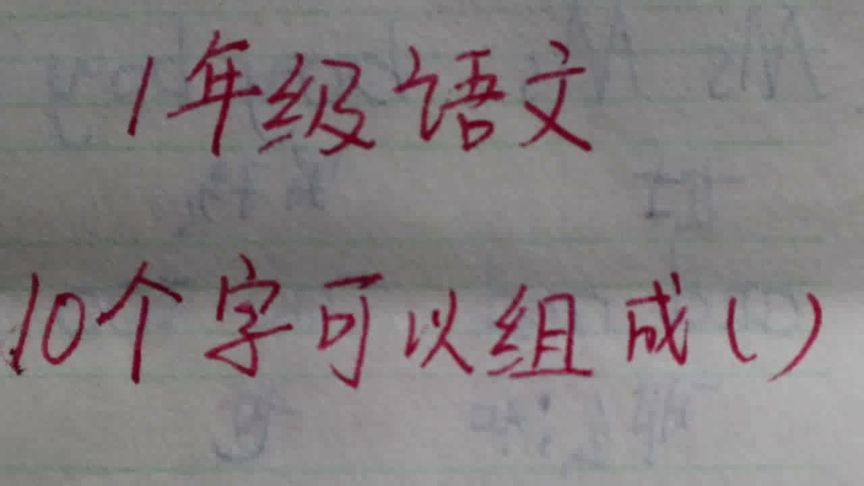 1年级语文
10个字可以组成()